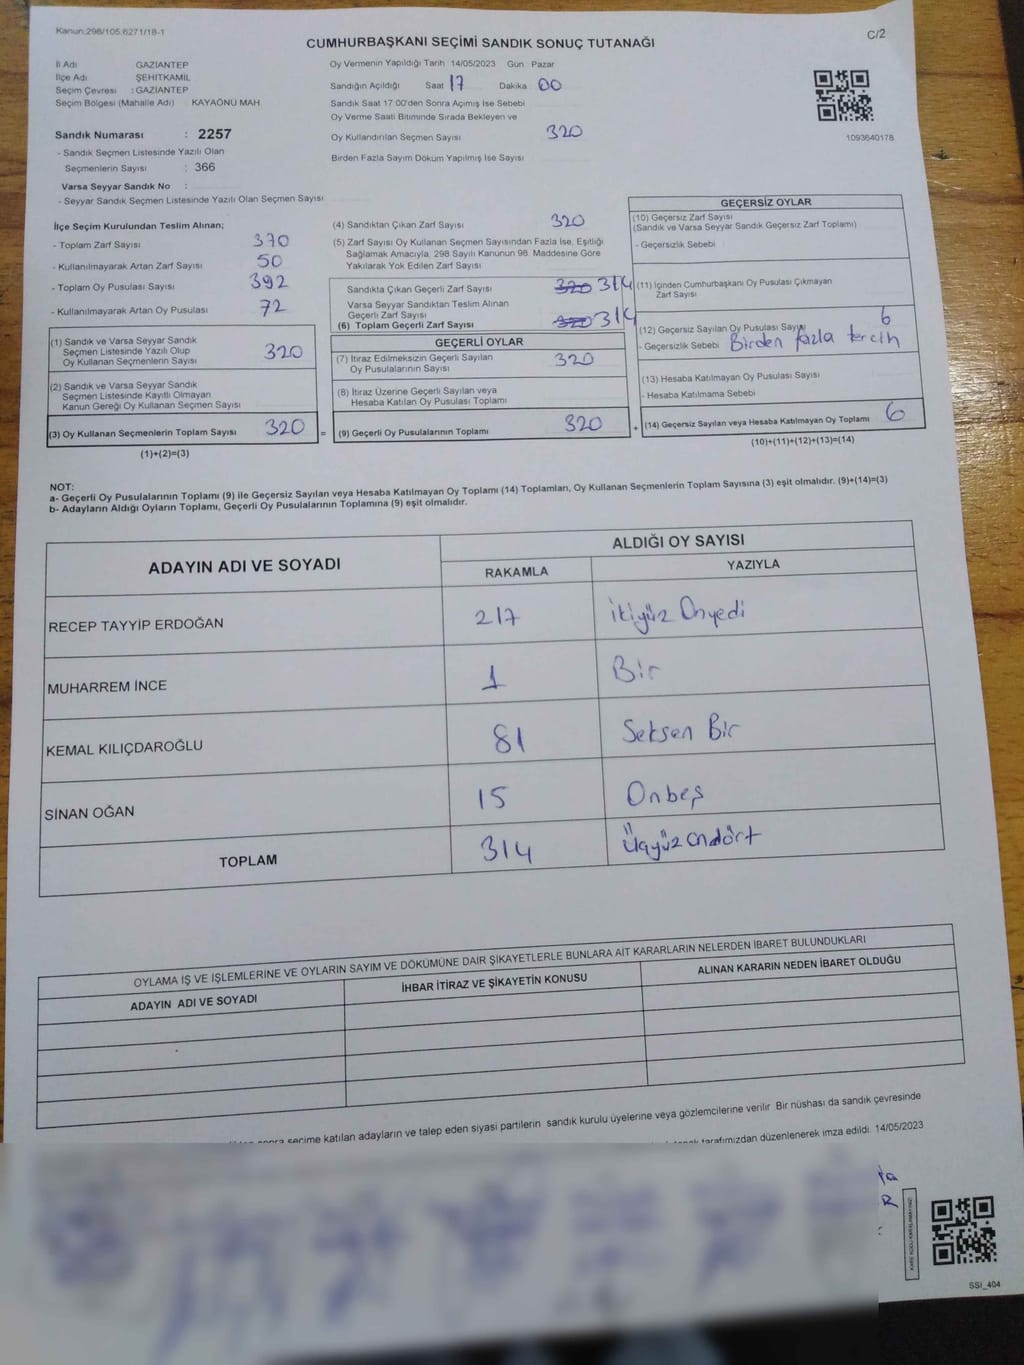 Kanun:298/105.6271/18-1
C/2
CUMHURBAŞKANI SEÇİMİ SANDIK SONUÇ TUTANAĞI
İl Adı GAZİANTEP
İlçe Adı ŞEHİTKAMİL
Seçim Çevresi : GAZİANTEP
Seçim Bölgesi (Mahalle Adı) KAYAÖNÜ MAH.
Sandık Numarası : 2257
- Sandık Seçmen Listesinde Yazılı Olan
Seçmenlerin Sayısı : 366
Varsa Seyyar Sandık No :
- Seyyar Sandık Seçmen Listesinde Yazılı Olan Seçmen Sayısı
Oy Vermenin Yapıldığı Tarih 14/05/2023 Gün Pazar
Sandığın Açıldığı Saat 17 Dakika 00
Sandık Saat 17.00'den Sonra Açımış İse Sebebi
Oy Verme Saati Bitiminde Sırada Bekleyen ve
Oy Kullandırılan Seçmen Sayısı 320
Birden Fazla Sayım Döküm Yapılmış İse Sayısı
1093640178
İlçe Seçim Kurulundan Teslim Alınan;
- Toplam Zarf Sayısı 370
- Kullanılmayarak Artan Zarf Sayısı 50
- Toplam Oy Pusulası Sayısı 392
- Kullanılmayarak Artan Oy Pusulası 72
(1) Sandık ve Varsa Seyyar Sandık
Seçmen Listesinde Yazılı Olup
Oy Kullanan Seçmenlerin Sayısı 320
(2) Sandık ve Varsa Seyyar Sandık
Seçmen Listesinde Kayıtlı Olmayan
Kanun Gereği Oy Kullanan Seçmen Sayısı
(3) Oy Kullanan Seçmenlerin Toplam Sayısı 320 =
(1)+(2)=(3)
(4) Sandıktan Çıkan Zarf Sayısı 320
(5) Zarf Sayısı Oy Kullanan Seçmen Sayısından Fazla İse, Eşitliği
Sağlamak Amacıyla, 298 Sayılı Kanunun 98. Maddesine Göre
Yakılarak Yok Edilen Zarf Sayısı
Sandıkta Çıkan Geçerli Zarf Sayısı 320 314
Varsa Seyyar Sandıktan Teslim Alınan
Geçerli Zarf Sayısı
(6) Toplam Geçerli Zarf Sayısı 320 314
GEÇERLİ OYLAR
(7) İtiraz Edilmeksizin Geçerli Sayılan
Oy Pusulalarının Sayısı 320
(8) İtiraz Üzerine Geçerli Sayılan veya
Hesaba Katılan Oy Pusulası Toplamı
(9) Geçerli Oy Pusulalarının Toplamı 320 +
GEÇERSİZ OYLAR
(10) Geçersiz Zarf Sayısı
(Sandık ve Varsa Seyyar Sandık Geçersiz Zarf Toplamı)
- Geçersizlik Sebebi
(11) İçinden Cumhurbaşkanı Oy Pusulası Çıkmayan
Zarf Sayısı
(12) Geçersiz Sayılan Oy Pusulası Sayısı 6
- Geçersizlik Sebebi Birden fazla tercih
(13) Hesaba Katılmayan Oy Pusulası Sayısı
- Hesaba Katılmama Sebebi
(14) Geçersiz Sayılan veya Hesaba Katılmayan Oy Toplamı 6
(10)+(11)+(12)+(13)=(14)
NOT:
a- Geçerli Oy Pusulalarının Toplamı (9) ile Geçersiz Sayılan veya Hesaba Katılmayan Oy Toplamı (14) Toplamları, Oy Kullanan Seçmenlerin Toplam Sayısına (3) eşit olmalıdır. (9)+(14)=(3)
b- Adayların Aldığı Oyların Toplamı, Geçerli Oy Pusulalarının Toplamına (9) eşit olmalıdır.
ADAYIN ADI VE SOYADI ALDIĞI OY SAYISI
RAKAMLA YAZIYLA
RECEP TAYYİP ERDOĞAN 217 İkiyüz Onyedi
MUHARREM İNCE 1 Bir
KEMAL KILIÇDAROĞLU 81 Seksen Bir
SİNAN OĞAN 15 Onbeş
TOPLAM 314 Üçyüz ondört
OYLAMA İŞ VE İŞLEMLERİNE VE OYLARIN SAYIM VE DÖKÜMÜNE DAİR ŞİKAYETLERLE BUNLARA AİT KARARLARIN NELERDEN İBARET BULUNDUKLARI
ADAYIN ADI VE SOYADI İHBAR İTİRAZ VE ŞİKAYETİN KONUSU ALINAN KARARIN NEDEN İBARET OLDUĞU
sonra seçime katılan adayların ve talep eden siyasi partilerin sandık kurulu üyelerine veya gözlemcilerine verilir Bir nüshası da sandık çevresinde
tarafımızdan düzenlenerek imza edildi. 14/05/2023
SSI_404